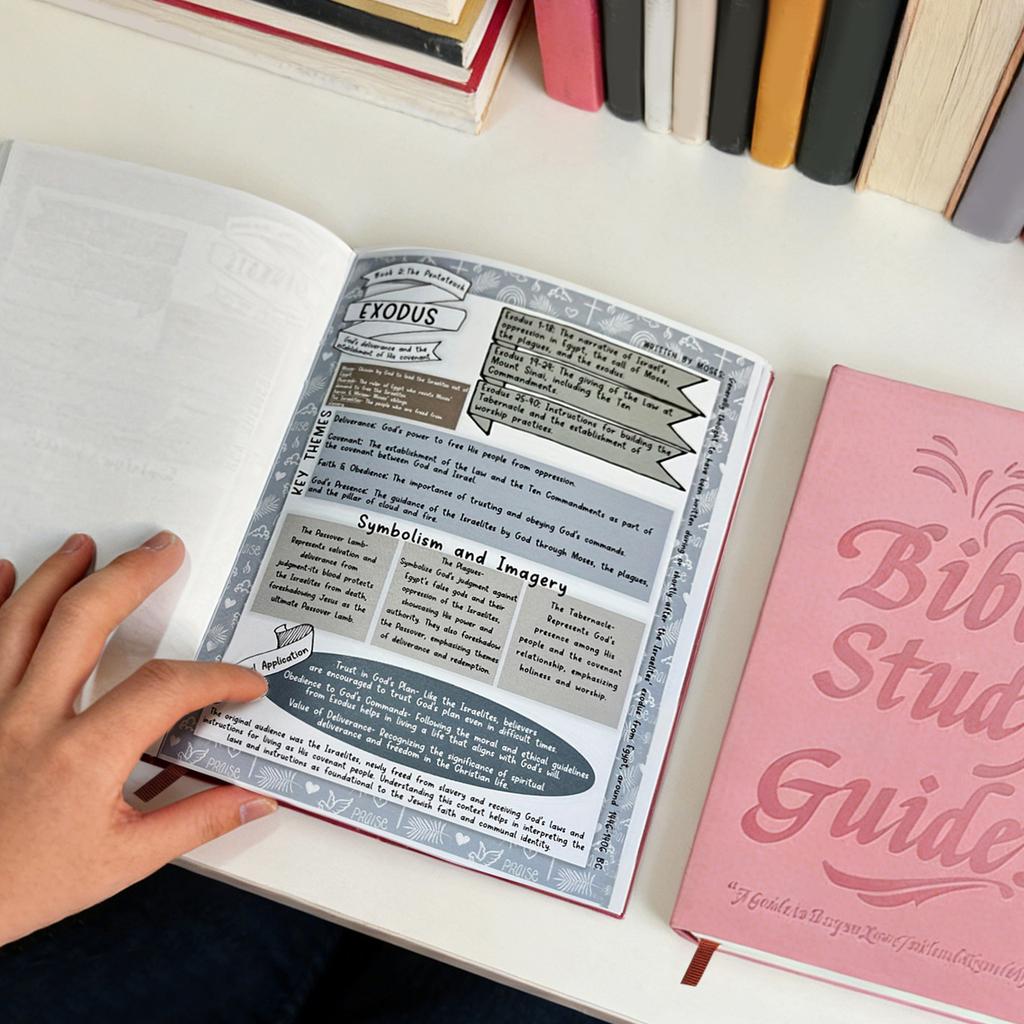 Book 2: The Pentateuch
EXODUS
God's deliverance and the
establishment of His covenant
WRITTEN BY MOSES
Generally thought to have been written during or shortly after the Israelites' exodus from Egypt, around 1446-1406 BC
Exodus 1-18: The narrative of Israel's
oppression in Egypt, the call of Moses,
the plagues, and the exodus.
Exodus 19-24: The giving of the Law at
Mount Sinai, including the Ten
Commandments.
Exodus 25-40: Instructions for building the
Tabernacle and the establishment of
worship practices.
Moses- Chosen by God to lead the Israelites out of
Egypt
Pharaoh- The ruler of Egypt who resists Moses'
demand to free the Israelites
Aaron & Miriam- Moses' siblings
The Israelites- The people who are freed from
KEY THEMES
Deliverance: God's power to free His people from oppression.
Covenant: The establishment of the law and the Ten Commandments as part of
the covenant between God and Israel
Faith & Obedience: The importance of trusting and obeying God's commands.
God's Presence: The guidance of the Israelites by God through Moses, the plagues,
and the pillar of cloud and fire.
Symbolism and Imagery
The Passover Lamb-
Represents salvation and
deliverance from
judgment-its blood protects
the Israelites from death,
foreshadowing Jesus as the
ultimate Passover Lamb.
The Plagues-
Symbolise God's judgment against
Egypt's false gods and their
oppression of the Israelites,
showcasing His power and
authority. They also foreshadow
the Passover, emphasizing themes
of deliverance and redemption.
The Tabernacle-
Represents God's
presence among His
people and the covenant
relationship, emphasizing
holiness and worship.
Application
Trust in God's Plan- Like the Israelites, believers
are encouraged to trust God's plan even in difficult times.
Obedience to God's Commands- Following the moral and ethical guidelines
from Exodus helps in living a life that aligns with God's will.
Value of Deliverance- Recognizing the significance of spiritual
deliverance and freedom in the Christian life.
The original audience was the Israelites, newly freed from slavery and receiving God's laws and
instructions for living as His covenant people. Understanding this context helps in interpreting the
laws and instructions as foundational to the Jewish faith and communal identity.
PRAISE
PRAISE
PRAISE
Bib
Stud
Guide